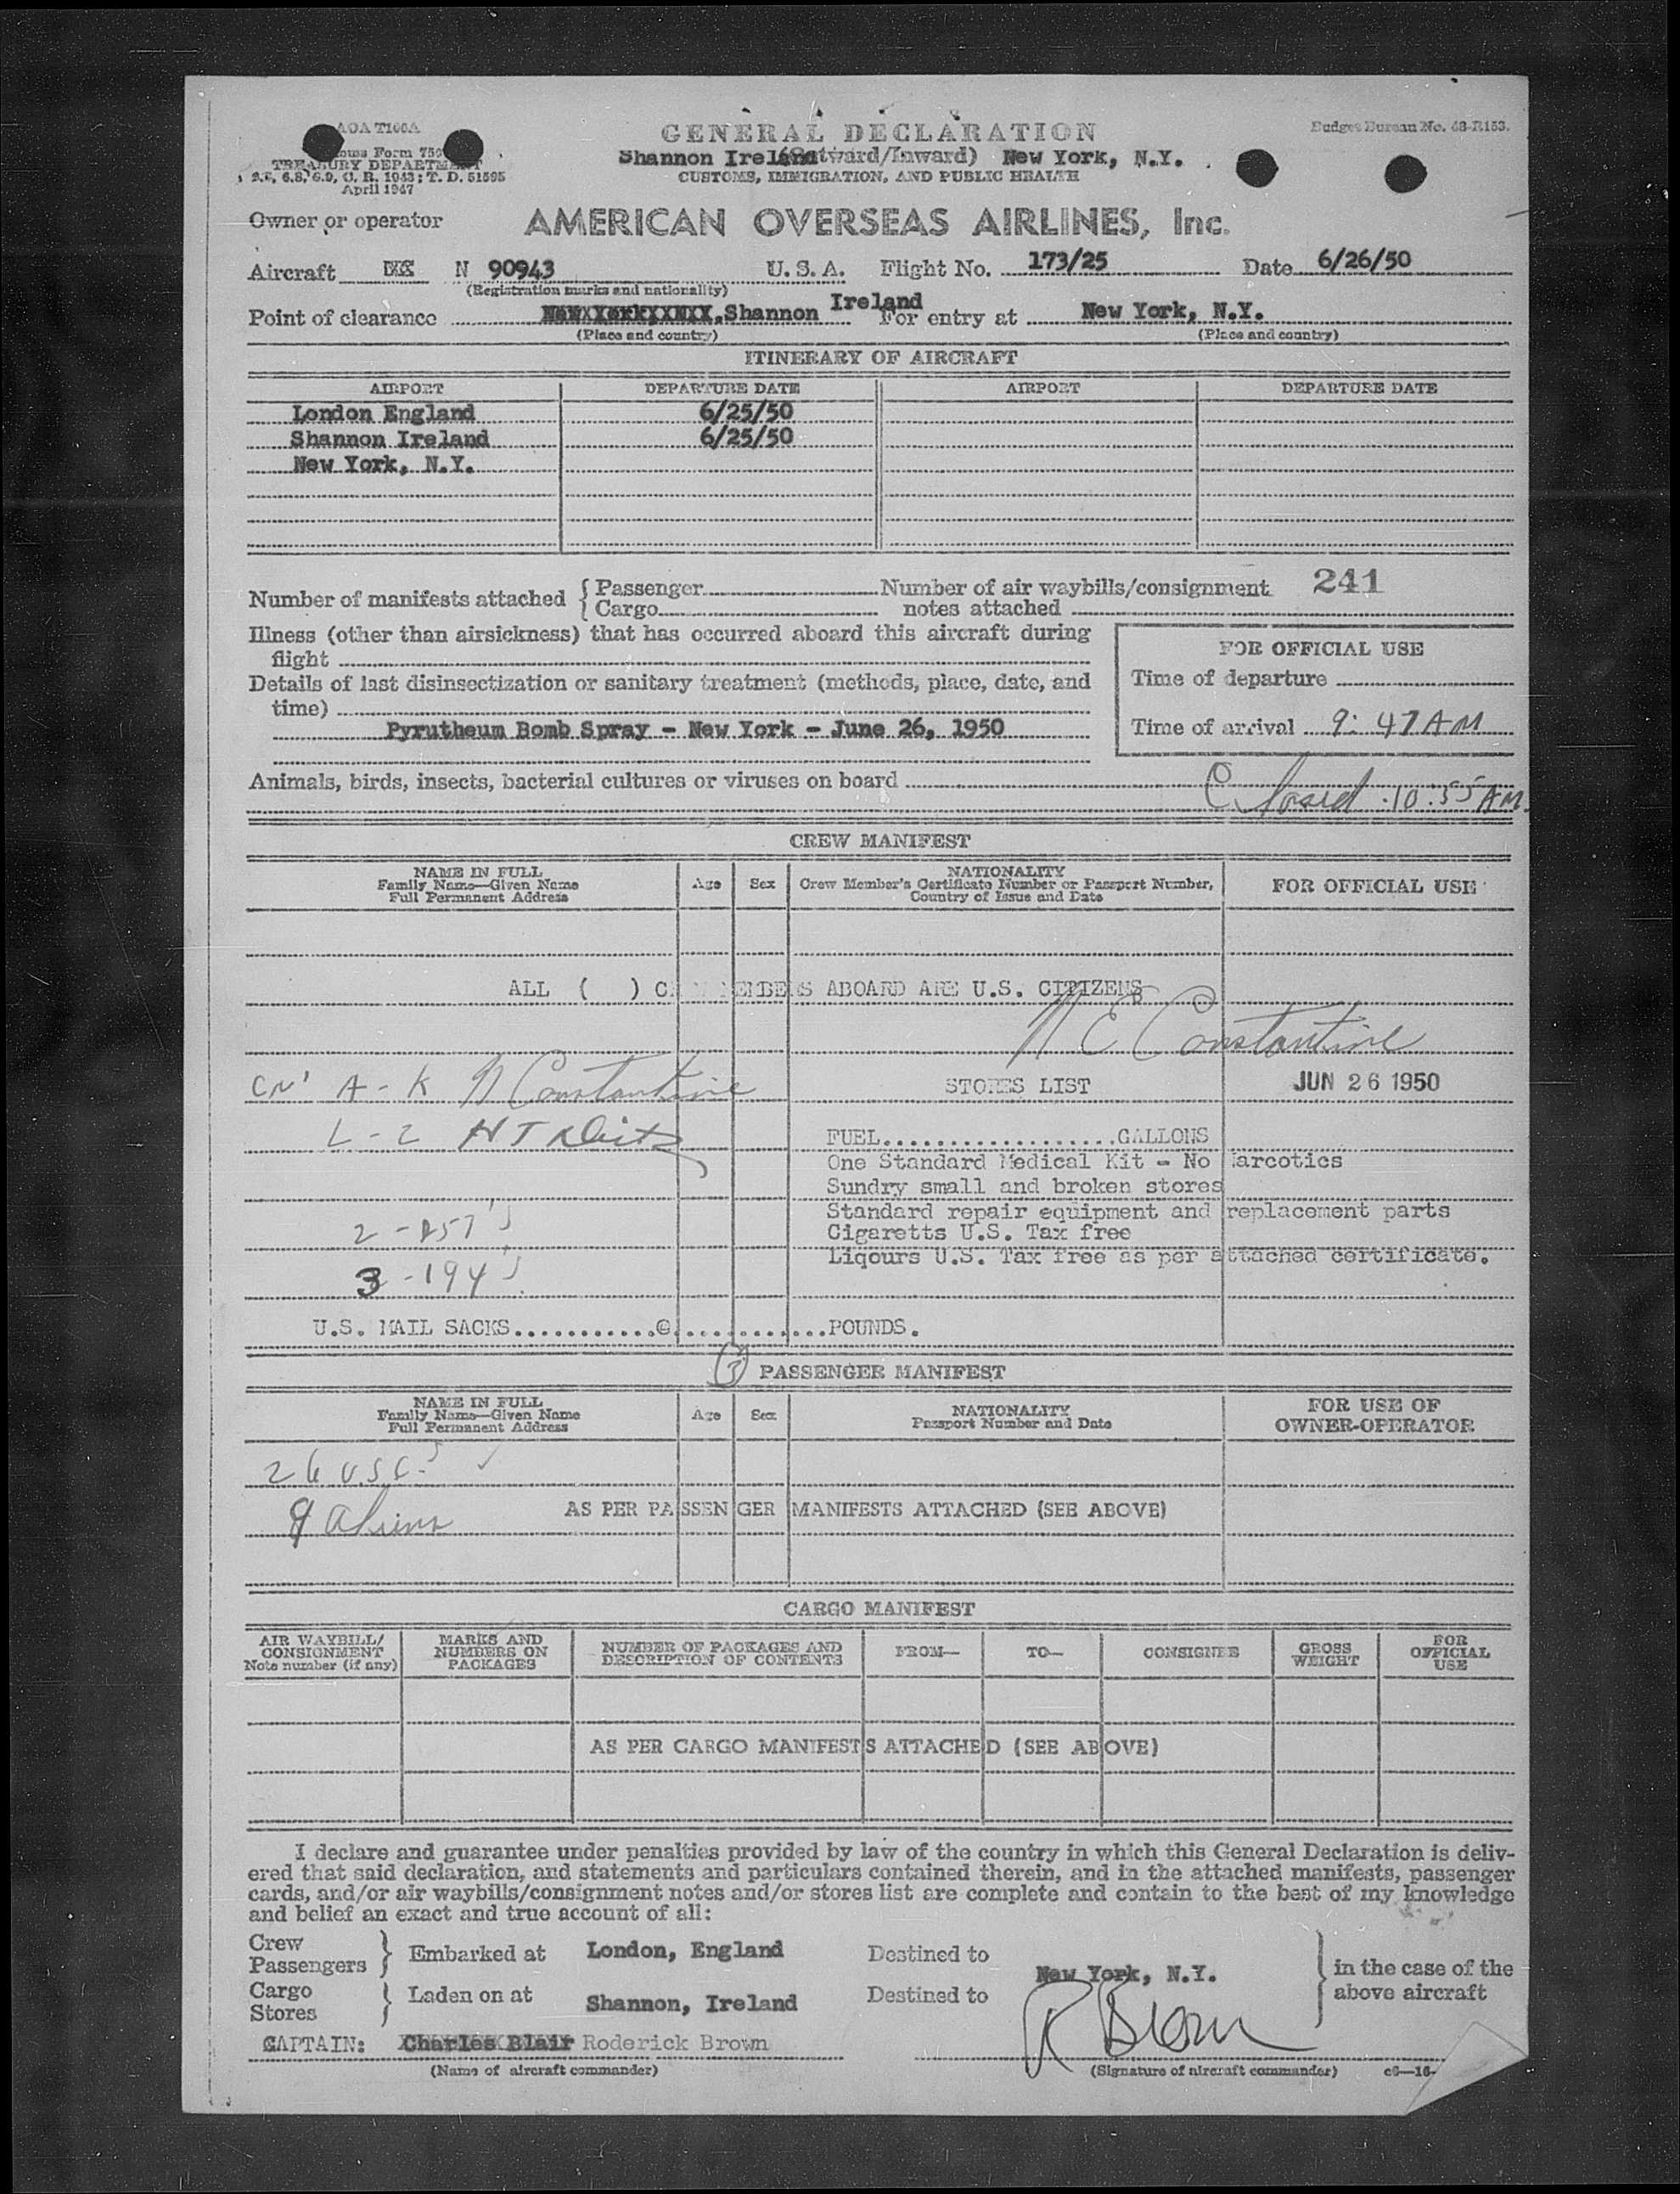 AOA T100A
Customs Form 750
TREASURY DEPARTMENT
6.8, 6.9, C. R. 1943; T. D. 51595
April 1947
Budget Bureau No. 48-R153.
GENERAL DECLARATION
Shannon Ireland (Outward/Inward) New York, N.Y.
CUSTOMS, IMMIGRATION, AND PUBLIC HEALTH
Owner or operator AMERICAN OVERSEAS AIRLINES, Inc.
Aircraft N 90943 U.S.A. Flight No. 173/25 Date 6/26/50
(Registration marks and nationality)
Point of clearance Shannon Ireland For entry at New York, N.Y.
(Place and country) (Place and country)
ITINERARY OF AIRCRAFT
AIRPORT DEPARTURE DATE AIRPORT DEPARTURE DATE
London England 6/25/50
Shannon Ireland 6/25/50
New York, N.Y.
Number of manifests attached { Passenger Number of air waybills/consignment 241
Cargo notes attached
Illness (other than airsickness) that has occurred aboard this aircraft during
flight
FOR OFFICIAL USE
Details of last disinsectization or sanitary treatment (methods, place, date, and
time)
Time of departure
Pyrutheum Bomb Spray - New York - June 26, 1950
Time of arrival 9:47 AM
Animals, birds, insects, bacterial cultures or viruses on board
Closed 10:55 AM.
CREW MANIFEST
NAME IN FULL
Family Name—Given Name
Full Permanent Address
Age Sex
NATIONALITY
Crew Member's Certificate Number or Passport Number,
Country of Issue and Date
FOR OFFICIAL USE
ALL ( ) CREW MEMBERS ABOARD ARE U.S. CITIZENS
N E Constantine
A-K N Constantine
STORES LIST
JUN 26 1950
L-Z
FUEL...................GALLONS
One Standard Medical Kit - No Narcotics
Sundry small and broken stores
Standard repair equipment and replacement parts
Cigaretts U.S. Tax free
Liqours U.S. Tax free as per attached certificate.
2-257's
3-194's
U.S. MAIL SACKS............@.............POUNDS.
PASSENGER MANIFEST
NAME IN FULL
Family Name—Given Name
Full Permanent Address
Age Sex
NATIONALITY
Passport Number and Date
FOR USE OF
OWNER-OPERATOR
26 USC's
9 Aliens
AS PER PASSENGER MANIFESTS ATTACHED (SEE ABOVE)
CARGO MANIFEST
AIR WAYBILL/
CONSIGNMENT
Note number (if any)
MARKS AND
NUMBERS ON
PACKAGES
NUMBER OF PACKAGES AND
DESCRIPTION OF CONTENTS
FROM— TO— CONSIGNEE
GROSS
WEIGHT
FOR
OFFICIAL
USE
AS PER CARGO MANIFESTS ATTACHED (SEE ABOVE)
I declare and guarantee under penalties provided by law of the country in which this General Declaration is deliv-
ered that said declaration, and statements and particulars contained therein, and in the attached manifests, passenger
cards, and/or air waybills/consignment notes and/or stores list are complete and contain to the best of my knowledge
and belief an exact and true account of all:
Crew
Passengers } Embarked at London, England Destined to
New York, N.Y.
in the case of the
above aircraft
Cargo
Stores } Laden on at Shannon, Ireland Destined to
R Brown
CAPTAIN: Charles Blair Roderick Brown
(Name of aircraft commander) (Signature of aircraft commander) c6—16-